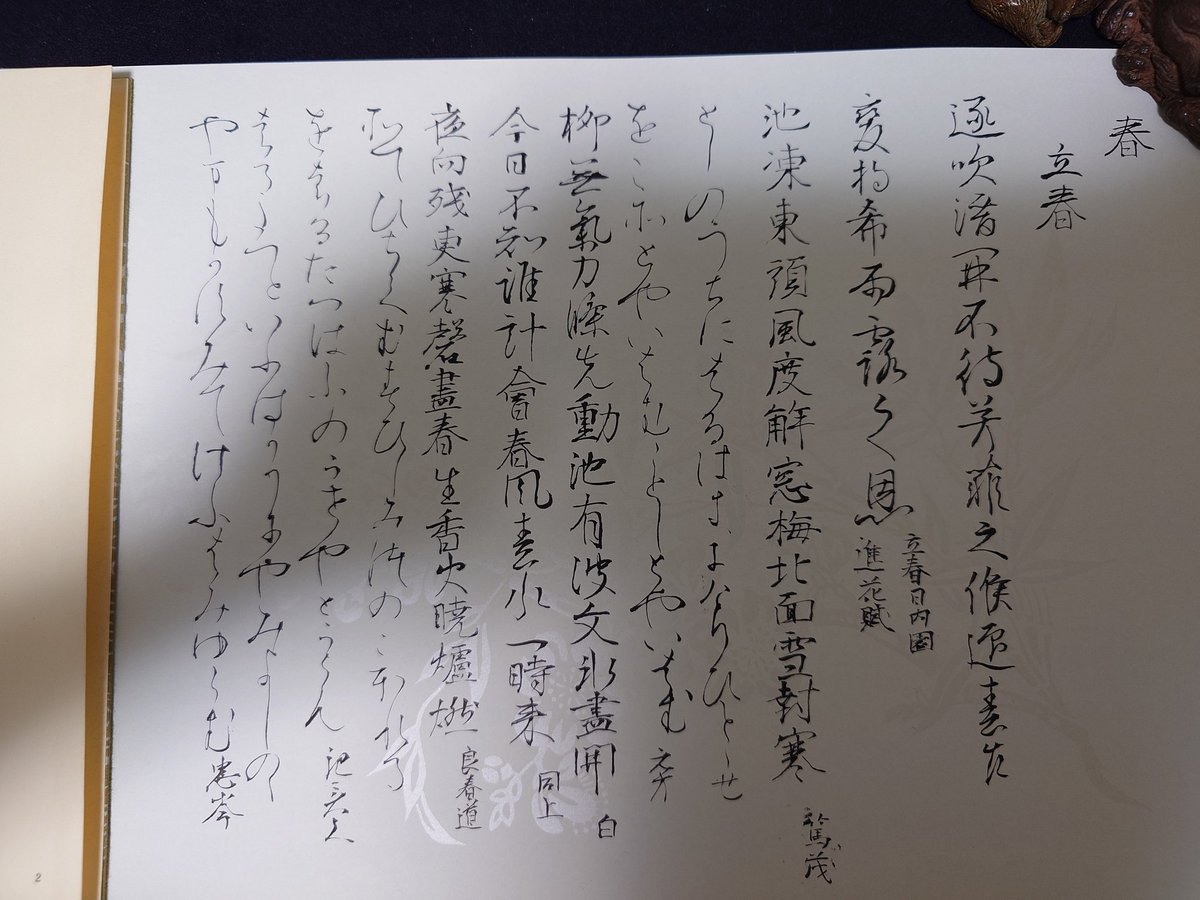 春
立春
逐吹潜開不待芳菲之候迎春乍
変将希雨露之恩
立春日内園
進花賦
池凍東頭風度解窓梅北面雪封寒
篤茂
としのうちにはるはきにけりひとゝせ
をこそとやいはむことしとやいはむ
元方
柳無氣力條先動池有波文氷盡開
白
今日不知誰計會春風春水一時来
同上
夜向残更寒磬盡春生香火曉爐燃
良春道
そてひちてむすひしみつのこほれる
をはるたつけふのかせやとくらん
紀貫之
はるたつといふはかりにやみよしのゝ
やまもかすみてけふはみゆらむ
忠岑
2